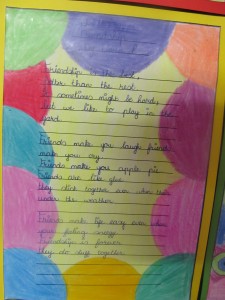 Friendship is the best,
better than the rest
sometimes might be hard,
but we like to play in the
yard.
Friends make you laugh friends
make you cry
Friends make you apple pie
Friends are like glue
they stick together even when
under the weather.
Friends make life easy even when
your feeling
Friendship is forever
they do stay together